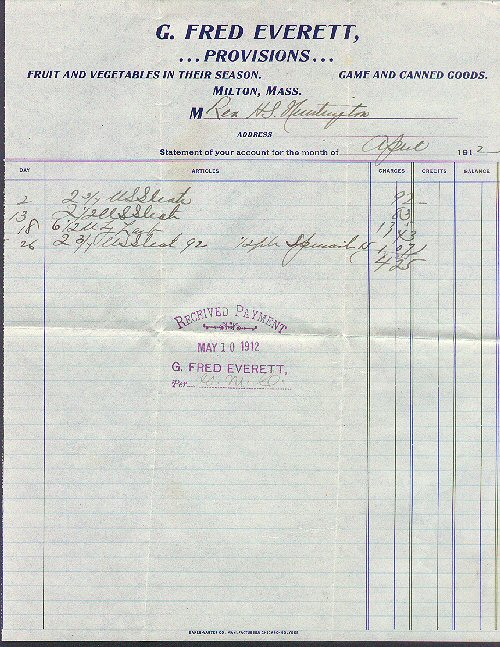 G. FRED EVERETT,
...PROVISIONS...
FRUIT AND VEGETABLES IN THEIR SEASON. GAME AND CANNED GOODS.
MILTON, MASS.
M Rev H.S. Huntington
ADDRESS
Statement of your account for the month of April 1912
DAY ARTICLES CHARGES CREDITS BALANCE
2 2 3/4 Steak 92
13 2 1/2 Steak 83
18 6 1/2 Leg 1 43
26 2 3/4 Steak 92 1/2 Pk Spinach 1 07
4 25
RECEIVED PAYMENT
MAY 10 1912
G. FRED EVERETT,
Per